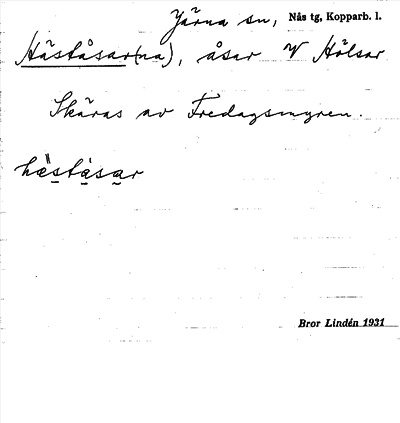 Järna sn, Nås tg, Kopparb. l.
Häståsar(na), åsar V Hålsar
Skäras av Fredagsmyren.
hèståsar
Bror Lindén 1931